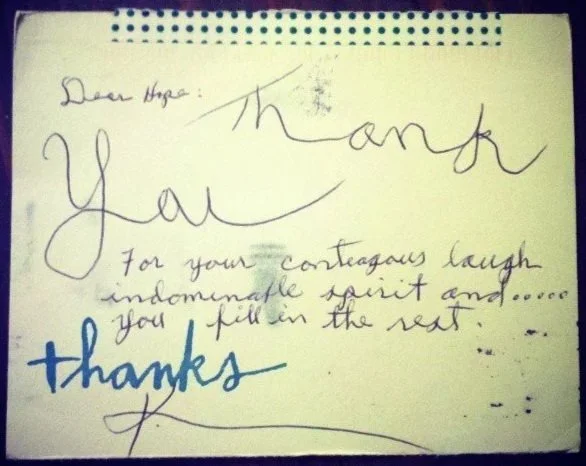 Dear Hope:
Thank
You
For your conteagous laugh
indominatle spirit and.....
you fill in the rest.
thanks
K.